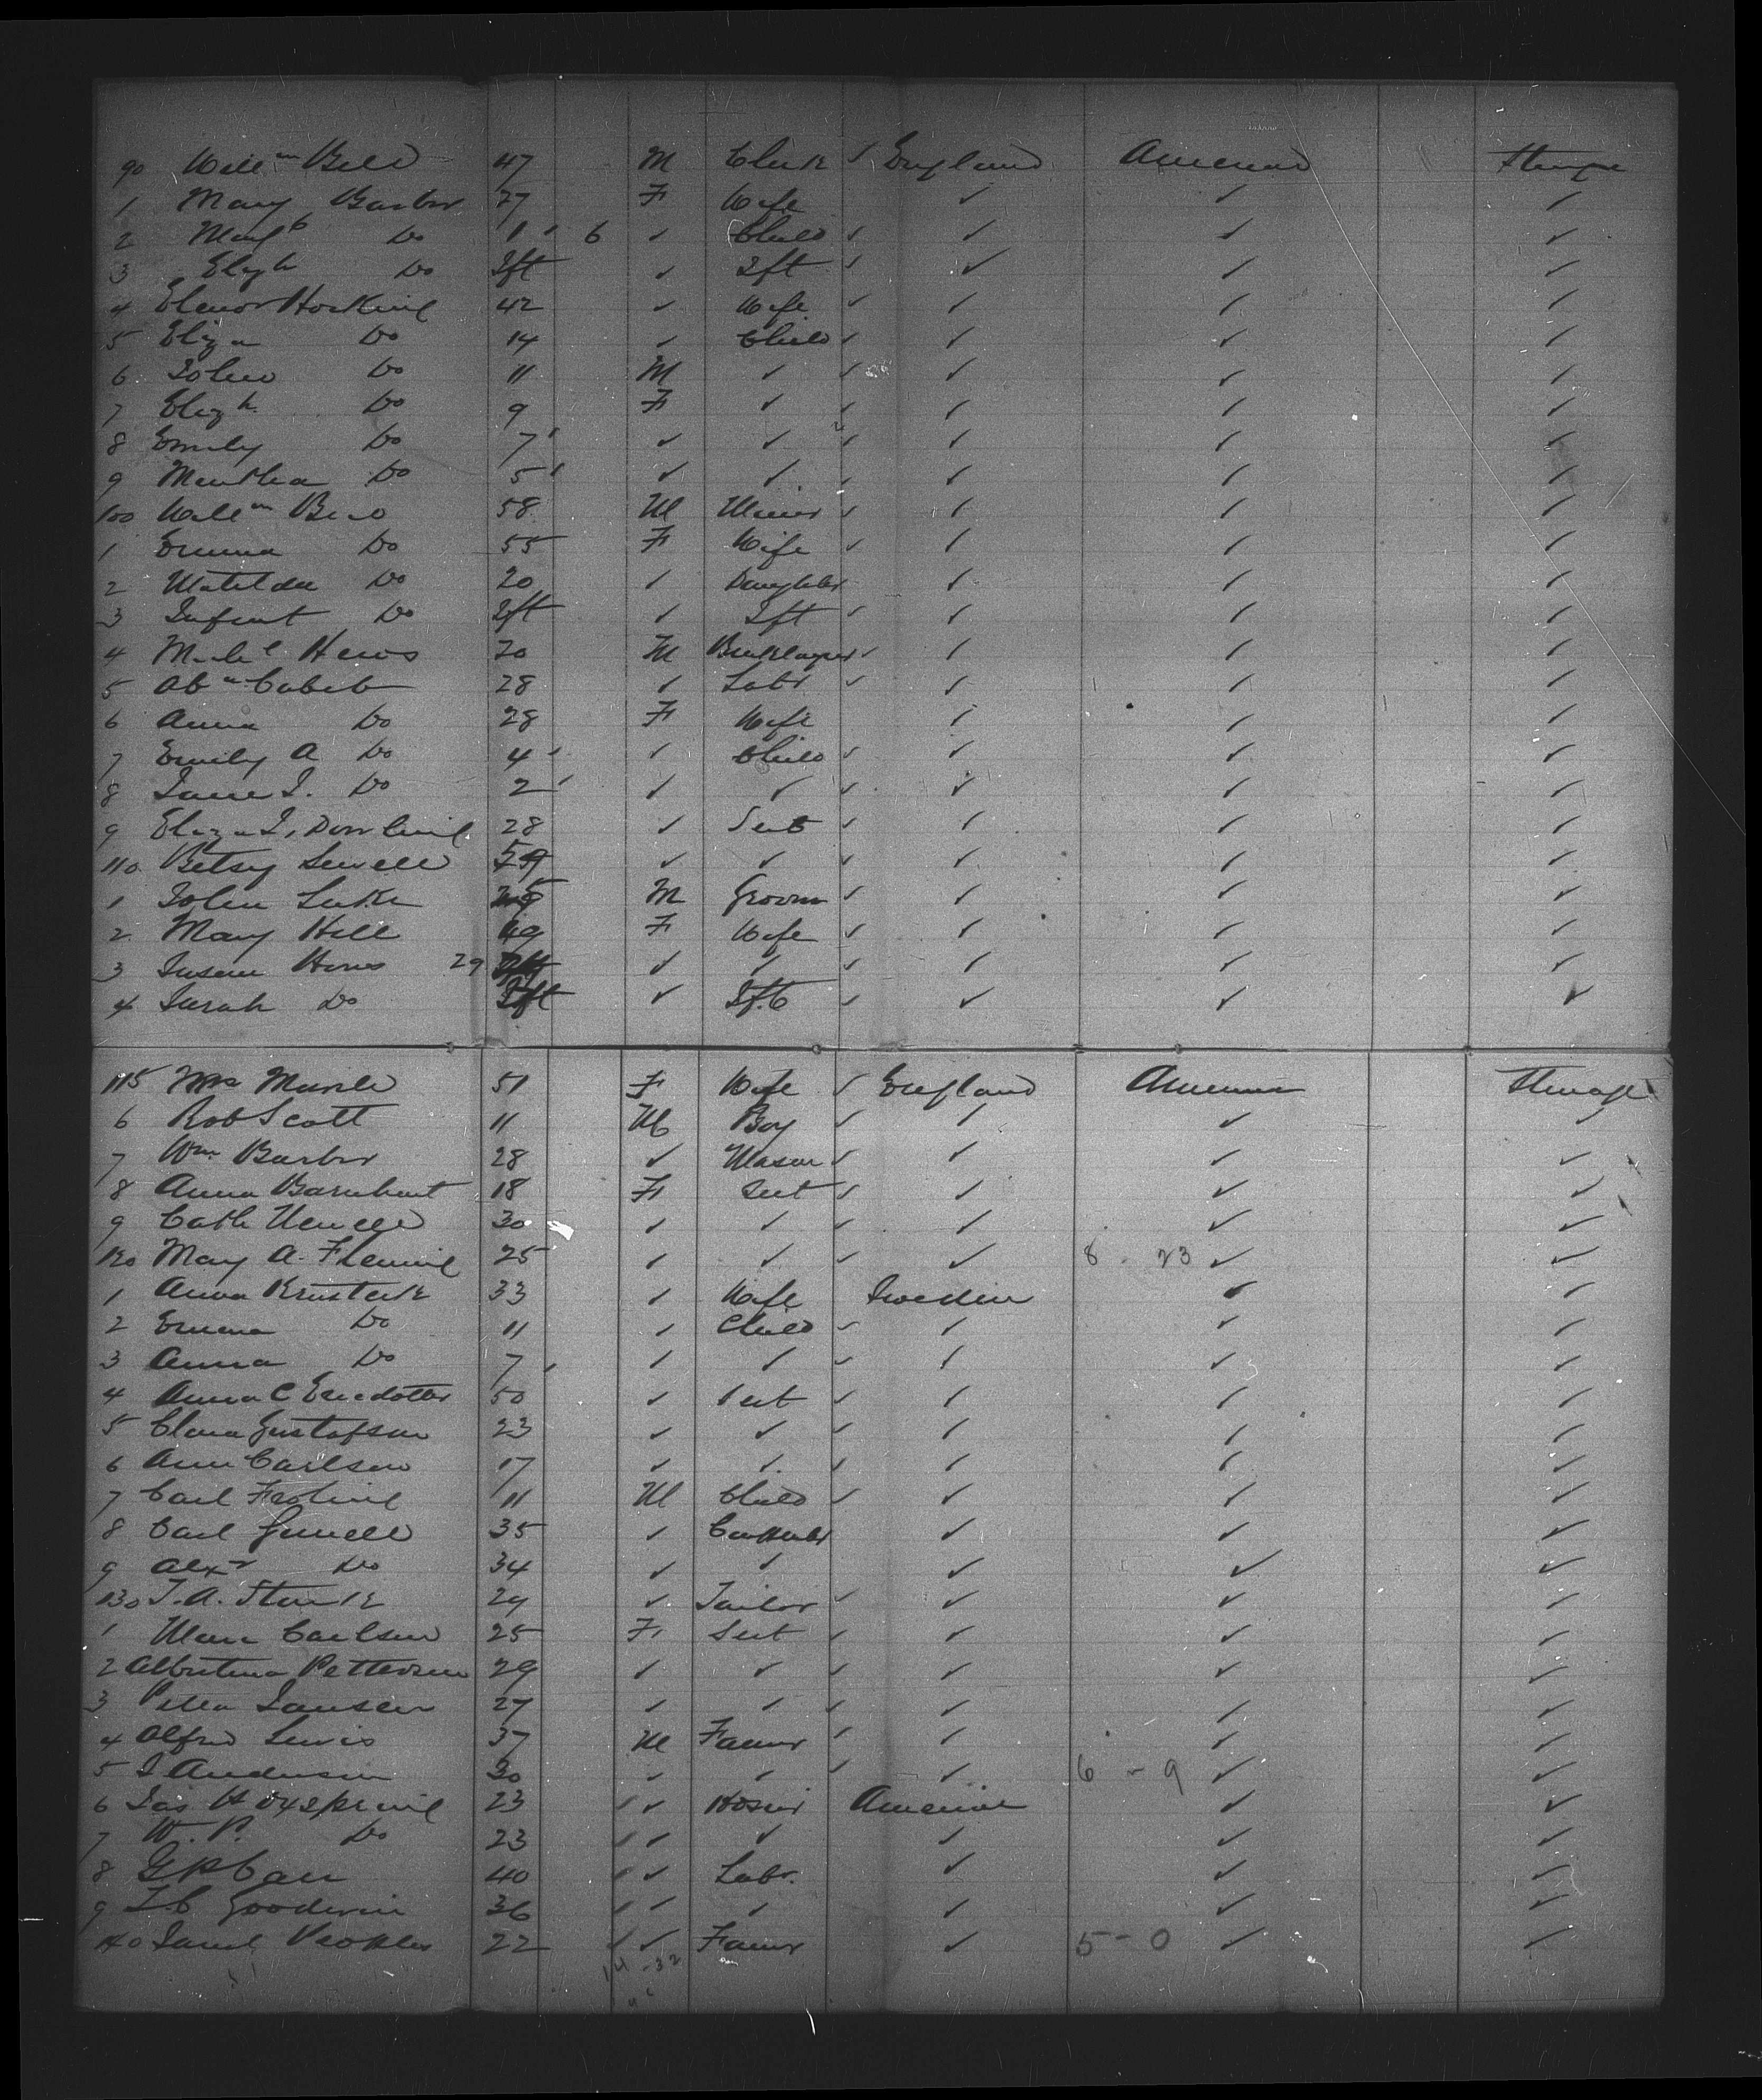 90 Willm Bell 47 M Clerk ✓ England America Steerage
1 Mary Barber 27 F Wife ✓ ✓ ✓
2 Mary Do 1 6 ✓ Child ✓ ✓ ✓ ✓
3 Elizh Do Ift ✓ Ift ✓ ✓ ✓ ✓
4 Elenor Hosking 42 ✓ Wife ✓ ✓ ✓ ✓
5 Eliza Do 14 ✓ Child ✓ ✓ ✓ ✓
6 John Do 11 M ✓ ✓ ✓ ✓ ✓
7 Elizh Do 9 F ✓ ✓ ✓ ✓ ✓
8 Emily Do 7 ✓ ✓ ✓ ✓ ✓ ✓
9 Martha Do 5 ✓ ✓ ✓ ✓ ✓ ✓
100 Willm 58 M Miner ✓ ✓ ✓ ✓
1 Emma Do 55 F Wife ✓ ✓ ✓ ✓
2 Matilda Do 20 ✓ Daughter ✓ ✓ ✓
3 Infant Do Ift ✓ Ift ✓ ✓ ✓ ✓
4 Michl Hews 20 M Bricklayer ✓ ✓ ✓ ✓
5 28 ✓ Labr ✓ ✓ ✓ ✓
6 Anna Do 28 F Wife ✓ ✓ ✓
7 Emily A Do 4 ✓ Child ✓ ✓ ✓ ✓
8 Jane J. Do 2 ✓ ✓ ✓ ✓ ✓ ✓
9 Eliza J. Dowling 28 ✓ Sert ✓ ✓ ✓ ✓
110 Betsy Sewell 59 ✓ ✓ ✓ ✓ ✓ ✓
1 John Luke M Groom ✓ ✓ ✓ ✓
2 Mary Hill 49 F Wife ✓ ✓ ✓ ✓
3 Susan Hows 29 ✓ ✓ ✓ ✓ ✓ ✓
4 Sarah Do Ift ✓ Ift ✓ ✓ ✓ ✓
115 Mrs 51 F Wife ✓ England America Steerage
6 Rob Scott 11 M Boy ✓ ✓ ✓ ✓
7 Wm. Barber 28 ✓ Mason ✓ ✓ ✓ ✓
8 Anna Barnhart 18 F Sert ✓ ✓ ✓ ✓
9 Cath 30 ✓ ✓ ✓ ✓ ✓ ✓
120 Mary A. Fleming 25 ✓ ✓ ✓ ✓ 8 - 23 ✓ ✓
1 Anna 33 ✓ Wife Sweden ✓ ✓
2 Emma Do 11 ✓ Child ✓ ✓ ✓ ✓
3 Anna Do 7 ✓ ✓ ✓ ✓ ✓ ✓
4 Anna C Ericdotter 50 ✓ Sert ✓ ✓ ✓ ✓
5 Clara Gustafson 23 ✓ ✓ ✓ ✓ ✓ ✓
6 Ann Carlson 17 ✓ ✓ ✓ ✓ ✓ ✓
7 Carl 11 M Child ✓ ✓ ✓ ✓
8 Carl 35 ✓ Carpenter ✓ ✓ ✓
9 Alexr Do 34 ✓ ✓ ✓ ✓ ✓
130 J. A. 29 ✓ Tailor ✓ ✓ ✓ ✓
1 Carlson 25 F Sert ✓ ✓ ✓ ✓
2 Albertina Petterson 29 ✓ ✓ ✓ ✓ ✓ ✓
3 Jansen 27 ✓ ✓ ✓ ✓ ✓ ✓
4 Alfred Lewis 37 M Farmer ✓ ✓ ✓ ✓
5 J Anderson 30 ✓ ✓ ✓ ✓ 6 - 9 ✓ ✓
6 Jas H 23 ✓ Hosier America ✓ ✓
7 W. P. Do 23 ✓ ✓ ✓ ✓ ✓
8 40 ✓ Labr. ✓ ✓ ✓
9 Goodwin 36 ✓ ✓ ✓ ✓ ✓
140 Saml Peoples 22 ✓ ✓ Farmer ✓ 5 - 0 ✓ ✓
14 - 32